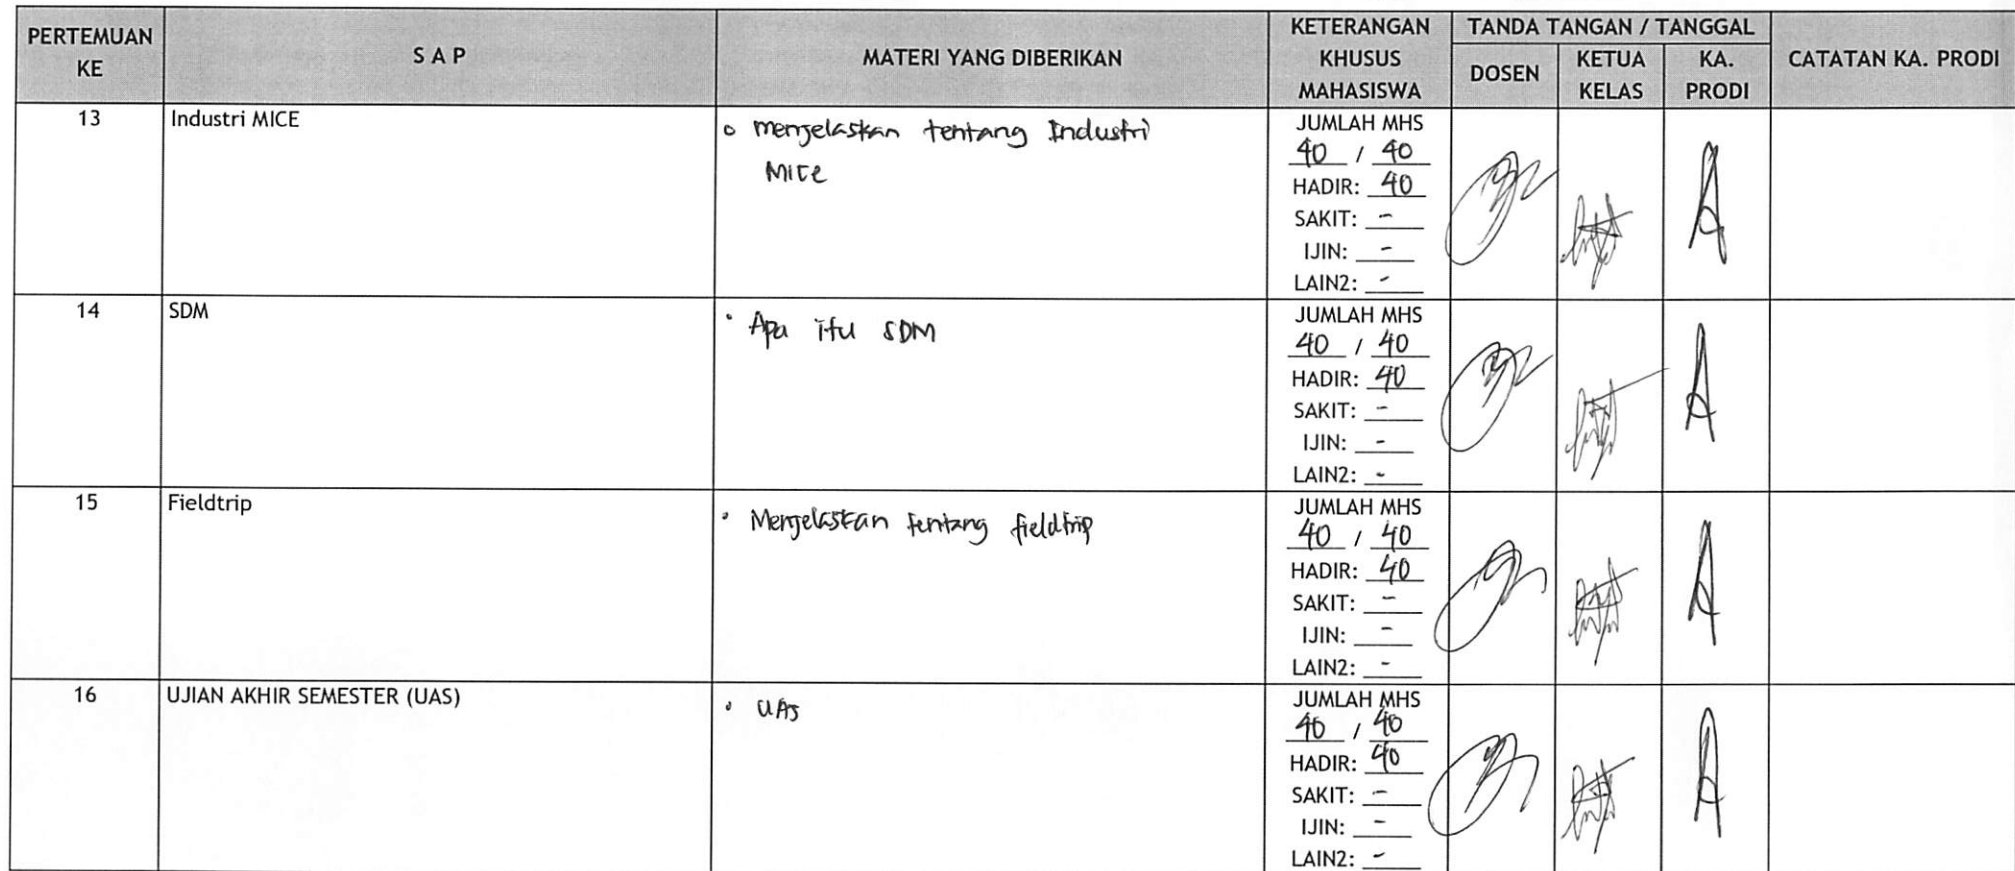 PERTEMUAN KE
S A P
MATERI YANG DIBERIKAN
KETERANGAN KHUSUS MAHASISWA
TANDA TANGAN / TANGGAL
DOSEN
KETUA KELAS
KA. PRODI
CATATAN KA. PRODI
13
Industri MICE
o menjelaskan tentang Industri
Mice
JUMLAH MHS
40 / 40
HADIR: 40
SAKIT: -
IJIN: -
LAIN2: -
14
SDM
• Apa itu SDM
JUMLAH MHS
40 / 40
HADIR: 40
SAKIT: -
IJIN: -
LAIN2: -
15
Fieldtrip
• Menjelaskan tentang fieldtrip
JUMLAH MHS
40 / 40
HADIR: 40
SAKIT: -
IJIN: -
LAIN2: -
16
UJIAN AKHIR SEMESTER (UAS)
• UAS
JUMLAH MHS
40 / 40
HADIR: 40
SAKIT: -
IJIN: -
LAIN2: -